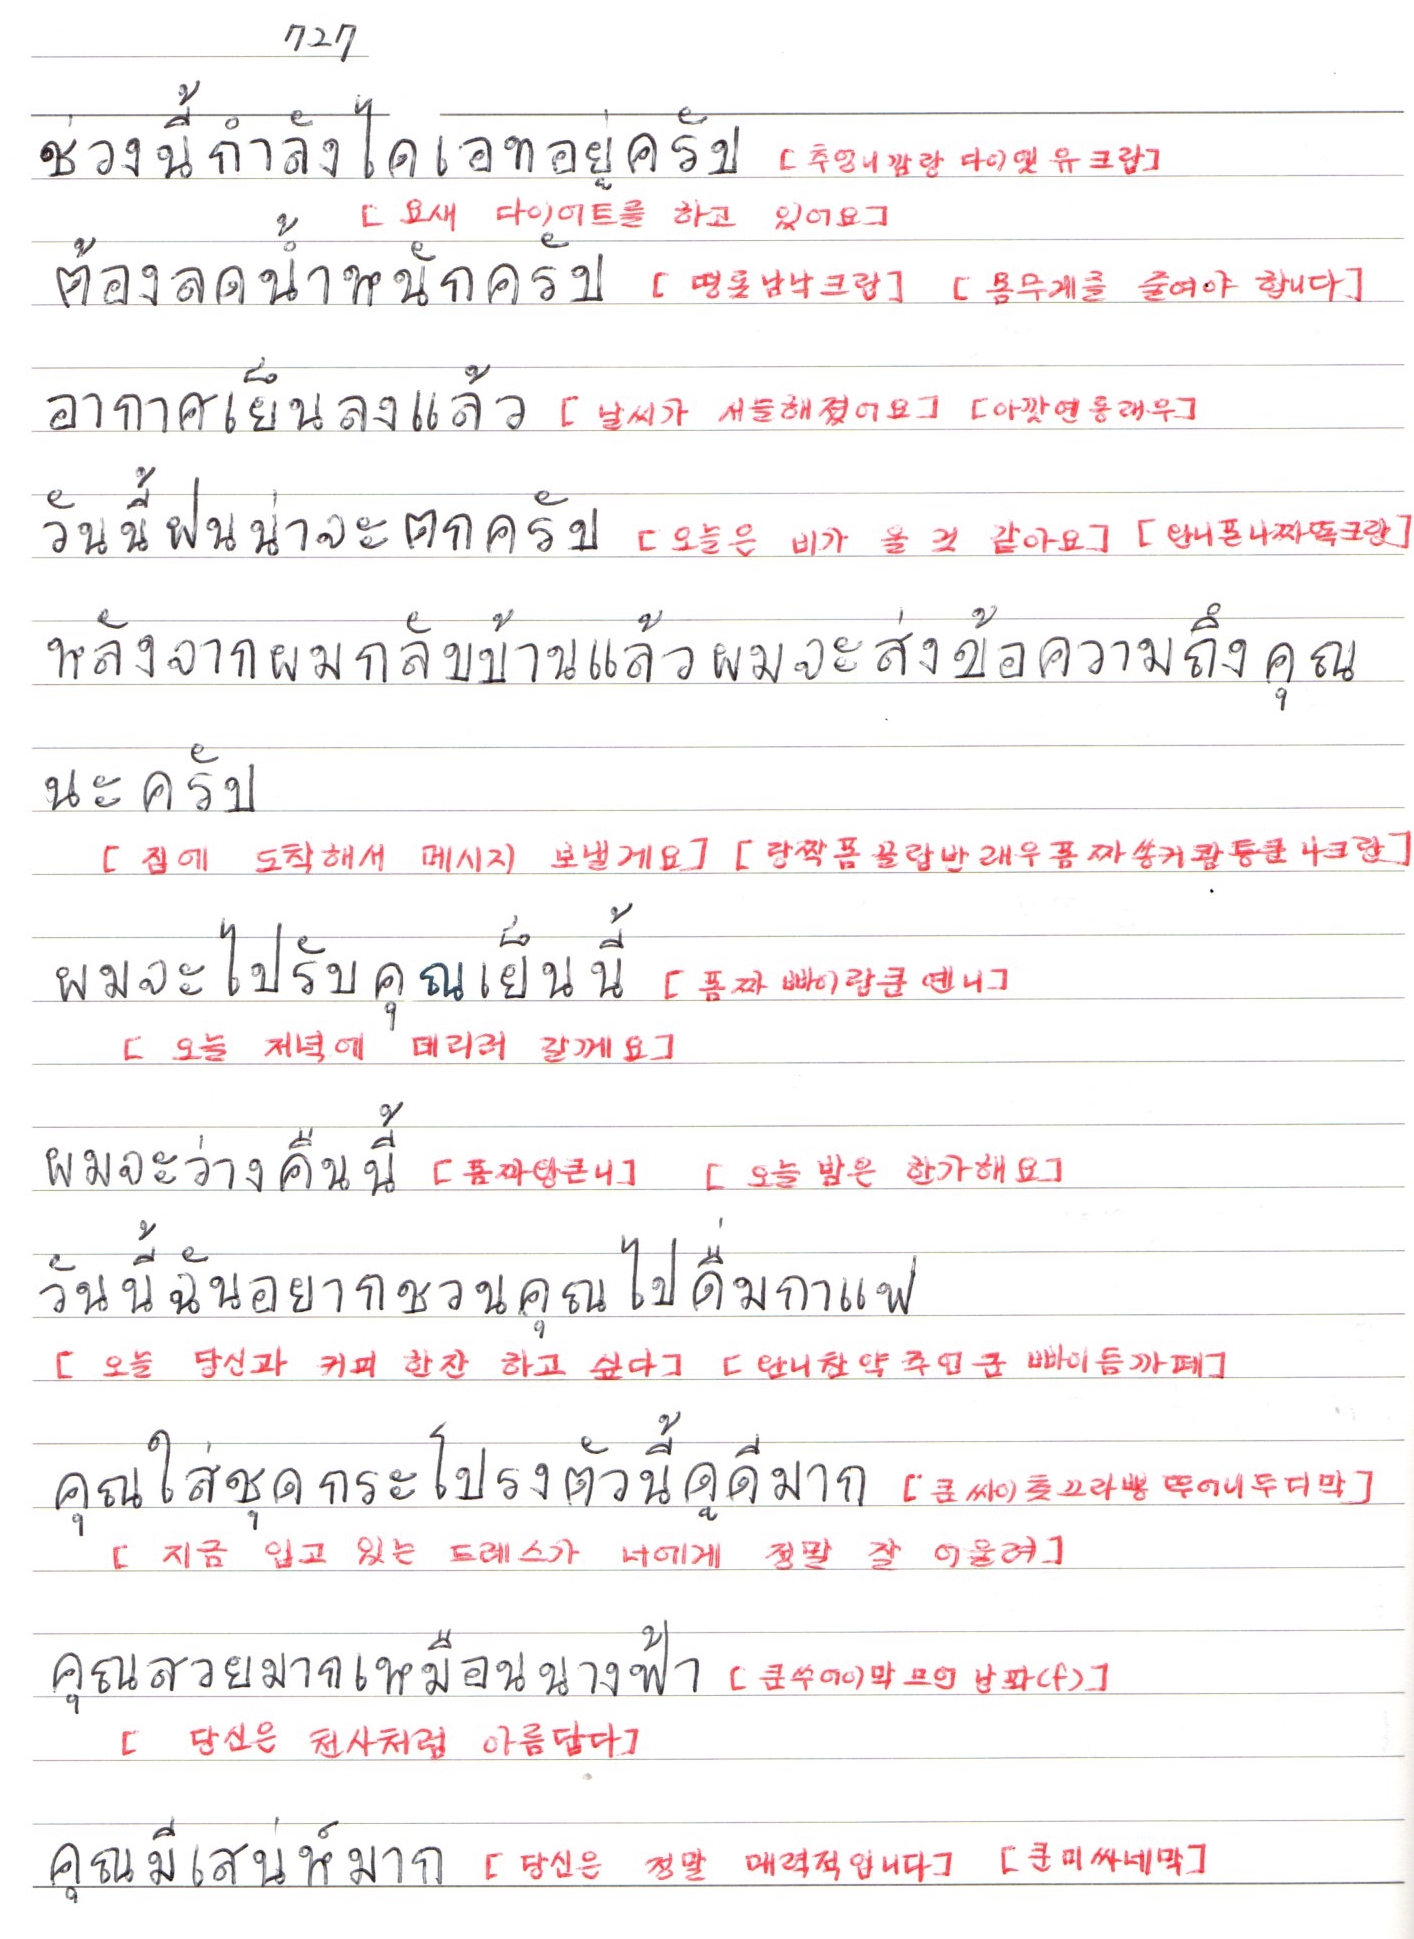 727
ช่วงนี้กำลังไดเอทอยู่ครับ [추엉니깜랑 다이엣 유 크랍]
[요새 다이어트를 하고 있어요]
ต้องลดน้ำหนักครับ [떵롯남낙크랍] [몸무게를 줄여야 합니다]
อากาศเย็นลงแล้ว [날씨가 서늘해졌어요] [아깟옌롱래우]
วันนี้ฝนน่าจะตกครับ [오늘은 비가 올 것 같아요] [완니폰나짜똑크랍]
หลังจากผมกลับบ้านแล้วผมจะส่งข้อความถึงคุณ
นะครับ
[집에 도착해서 메시지 보낼게요] [랑짝폼끌랍반래우폼짜쏭커쾀퉁쿤나크랍]
ผมจะไปรับคุณเย็นนี้ [폼짜빠이랍쿤옌니]
[오늘 저녁에 데리러 갈께요]
ผมจะว่างคืนนี้ [폼짜왕큰니] [오늘 밤은 한가해요]
วันนี้ฉันอยากชวนคุณไปดื่มกาแฟ
[오늘 당신과 커피 한잔 하고 싶다] [완니찬약추언쿤빠이듬까페]
คุณใส่ชุดกระโปรงตัวนี้ดูดีมาก [쿤싸이춧끄라쁭뚜어니두디막]
[지금 입고 있는 드레스가 너에게 정말 잘 어울려]
คุณสวยมากเหมือนนางฟ้า [쿤쑤어이막므언낭퐈(f)]
[당신은 천사처럼 아름답다]
คุณมีเสน่ห์มาก [당신은 정말 매력적입니다] [쿤미싸네막]